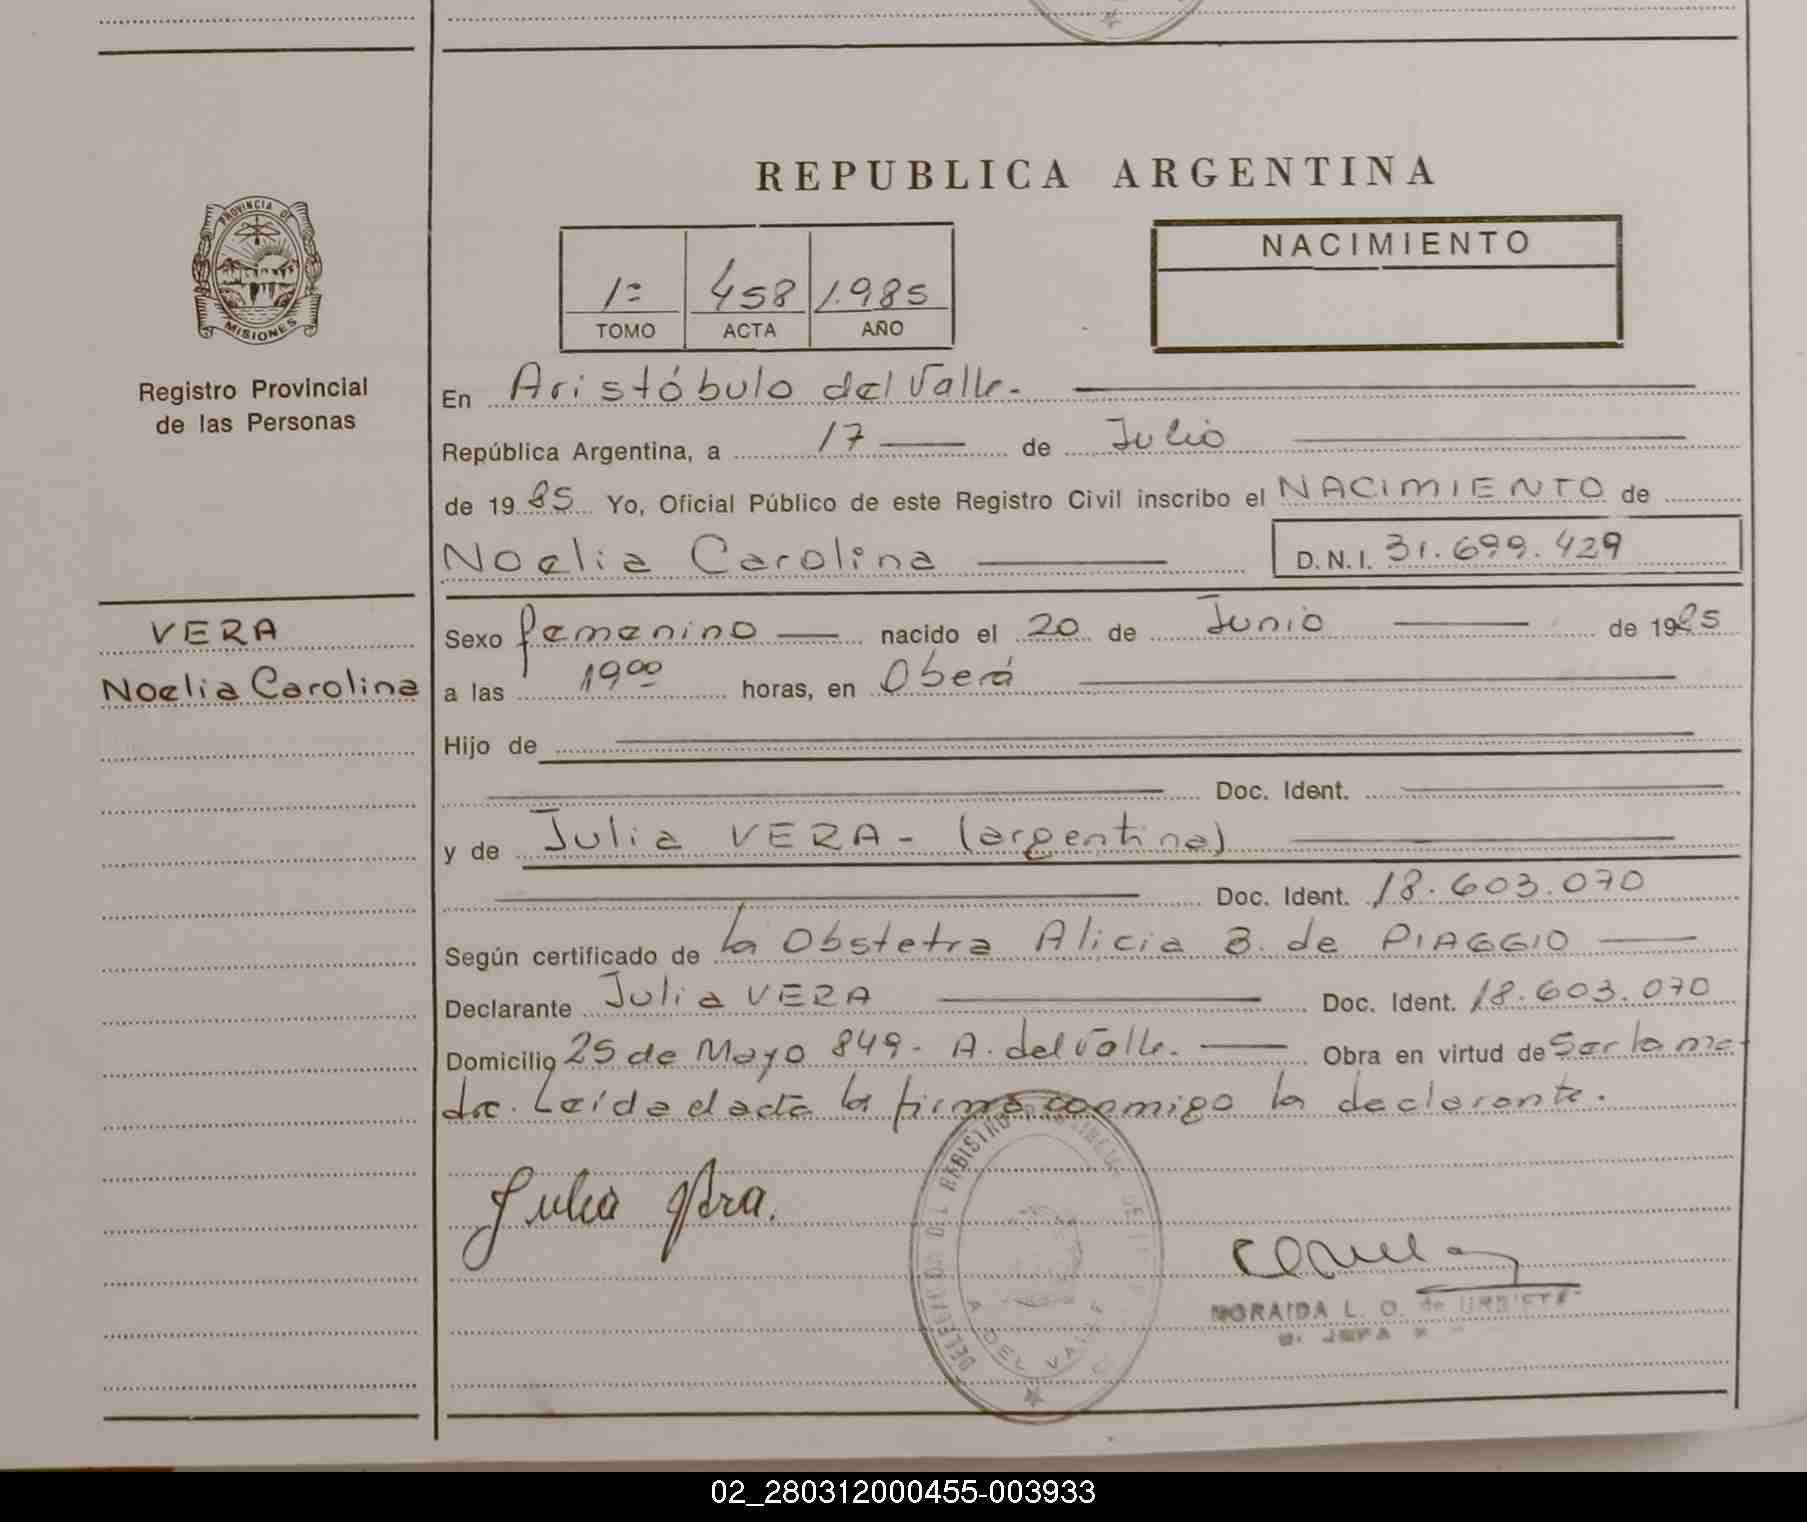 REPUBLICA ARGENTINA
PROVINCIA DE
MISIONES
Registro Provincial
de las Personas
1º 458 1.985
TOMO ACTA AÑO
NACIMIENTO
En Aristóbulo del Valle.
República Argentina, a 17 de Julio
de 1985 Yo, Oficial Público de este Registro Civil inscribo el NACIMIENTO de
Noelia Carolina D.N.I. 31.699.429
VERA
Noelia Carolina
Sexo femenino nacido el 20 de Junio de 1985
a las 19⁰⁰ horas, en Oberá
Hijo de
Doc. Ident.
y de Julia VERA - (argentina)
Doc. Ident. 18.603.070
Según certificado de la Obstetra Alicia B. de PIAGGIO
Declarante Julia VERA Doc. Ident. 18.603.070
Domicilio 25 de Mayo 849 - A. del Valle. Obra en virtud de Ser la ma-
dre. Leída el acta la firma conmigo la declarante.
Julia Vera.
DELEGACION DEL REGISTRO PROVINCIAL DE
A. DEL VALLE
NORAIDA L. O. de URBIETA
JEFA
02_280312000455-003933